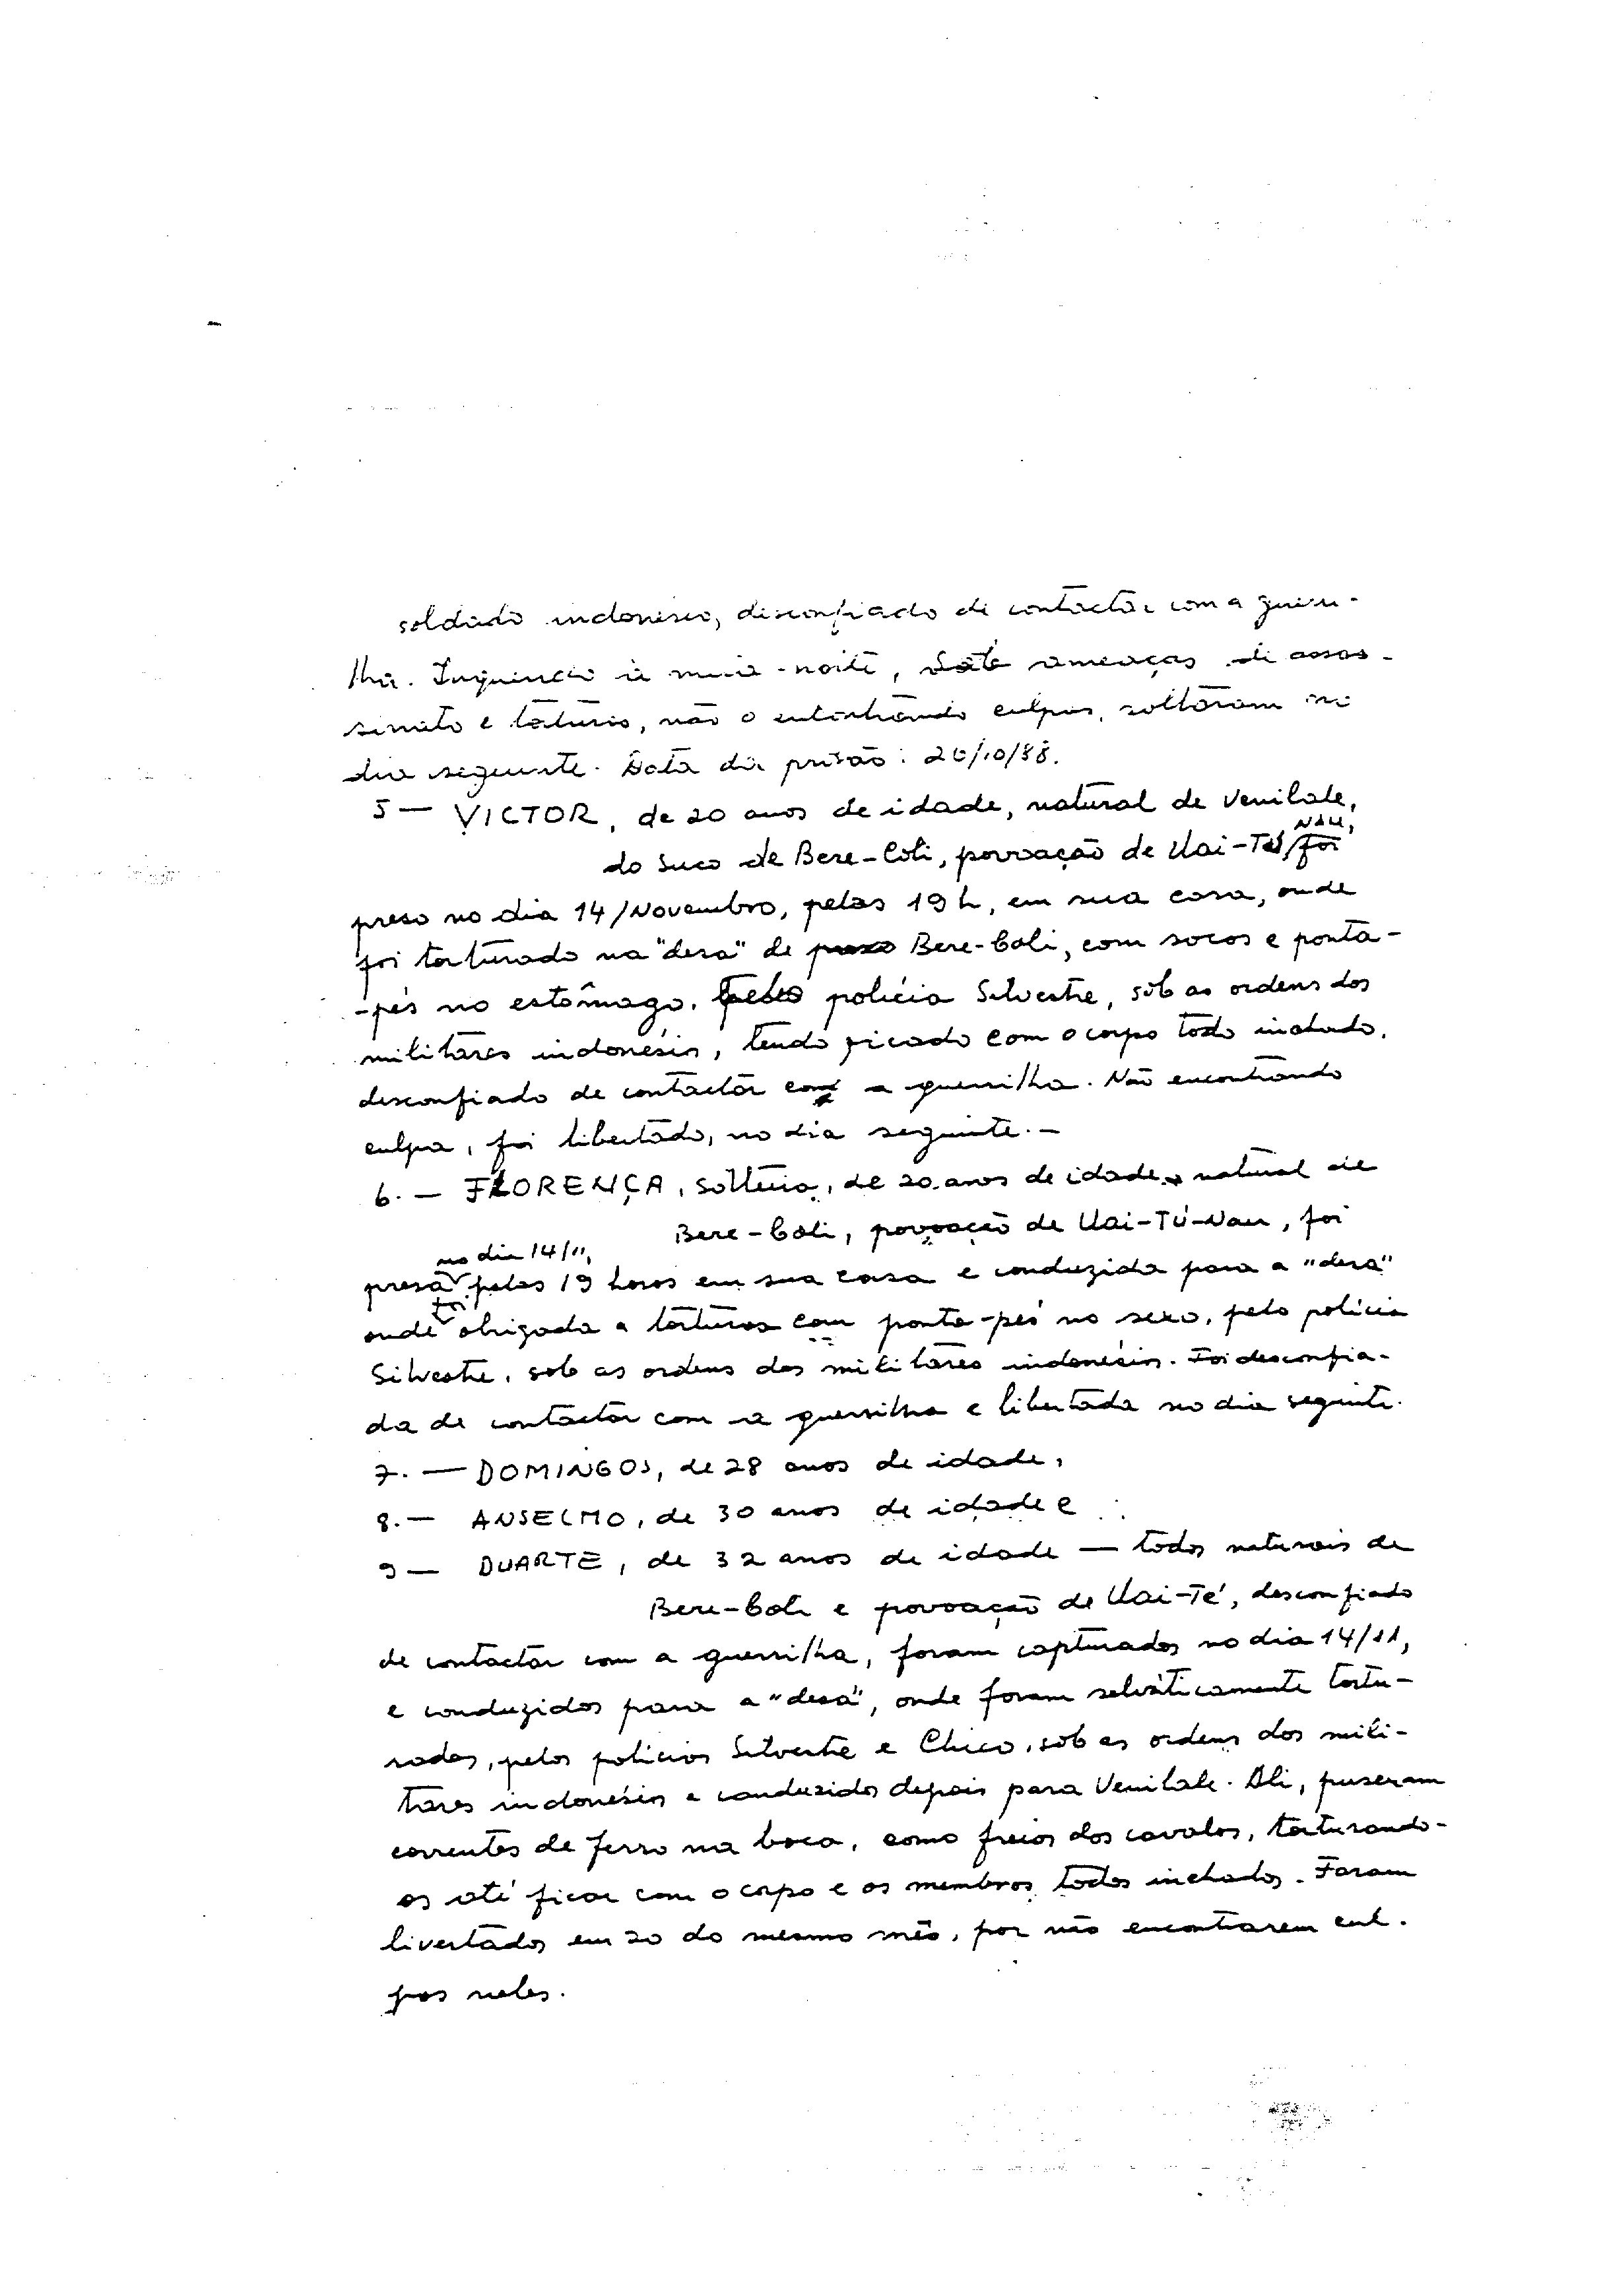 soldado indonésio, desconfiado de contactar com a guerri-
lha. Inquirição à meia-noite, ameaças de assas-
sinato e torturas, não o encontrando culpas, soltaram no
dia seguinte. Data da prisão: 26/10/88.
5 — VICTOR, de 20 anos de idade, natural de Venilale,
do Suco de Bere-Coli, povoação de Uai-Tú NAU, foi
preso no dia 14/Novembro, pelas 19 h, em sua casa, onde
foi torturado na "desa" de Bere-Coli, com socos e ponta-
-pés no estômago. Pelo polícia Silvestre, sob as ordens dos
militares indonésios, tendo ficado com o corpo todo inchado,
desconfiado de contactar com a guerrilha. Não encontrando
culpa, foi libertado, no dia seguinte.—
6. — FLORENÇA, solteira, de 20 anos de idade, natural de
Bere-Coli, povoação de Uai-Tú-Nau, foi
presa no dia 14/11, pelas 19 horas em sua casa e conduzida para a "desa"
onde foi obrigada a torturas com ponta-pés no sexo, pelo polícia
Silvestre, sob as ordens dos militares indonésios. Foi desconfia-
da de contactar com a guerrilha e libertada no dia seguinte.
7. — DOMINGOS, de 28 anos de idade,
8. — ANSELMO, de 30 anos de idade e
9 — DUARTE, de 32 anos de idade — todos naturais de
Bere-Coli e povoação de Uai-Té, desconfiado
de contactar com a guerrilha, foram capturados no dia 14/11,
e conduzidos para a "desa", onde foram selváticamente tortu-
rados, pelos polícias Silvestre e Chico, sob as ordens dos mili-
tares indonésios e conduzidos depois para Venilale. Ali, puseram
correntes de ferro na boca, como freios dos cavalos, torturando-
os até ficar com o corpo e os membros todos inchados. Foram
livertados em 20 do mesmo mês, por não encontrarem cul-
pas neles.